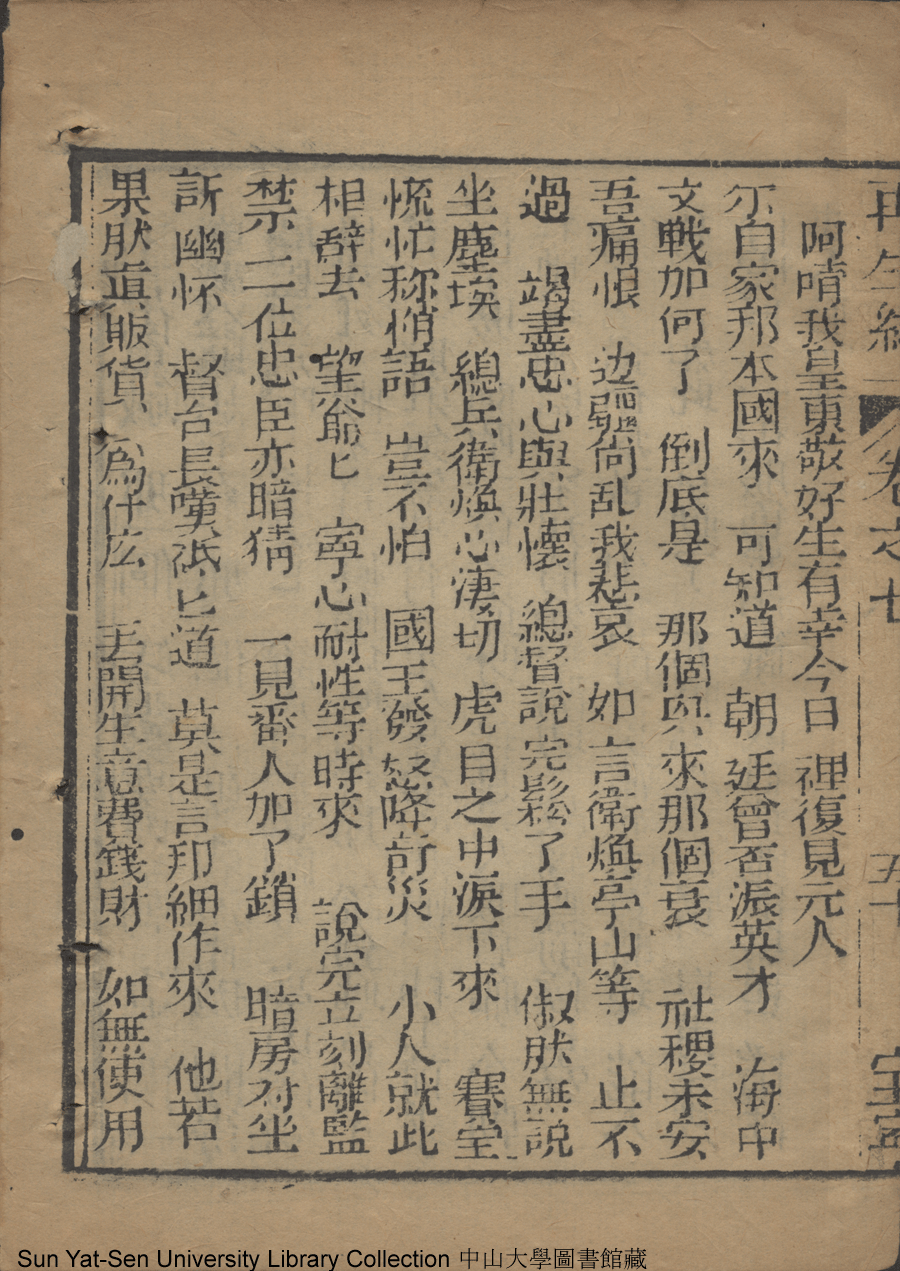 再生緣 卷之七 五十 宝寧
阿唷我皇東敬好生有幸今日 裡復見元人
尔自家邦本國來 可知道 朝廷曾否派英才 海中
文戰加何了 倒底是 那個與來那個衰 社稷未安
吾痛恨 边疆尚乱我悲哀 如言衛煥亭山等 止不
過 竭盡忠心與壯懷 總督說完鬆了手 俶肰無說
坐塵埃 總兵衛煥心凄切 虎目之中淚下來 賽金
慌忙称悄語 豈不怕 國王發怒降奇災 小人就此
相辞去 望爺匕 寧心耐性等時來 說完立刻離監
禁 二位忠臣亦暗猜 一見番人加了鎖 暗房对坐
訴幽怀 督台長嘆衹匕道 莫是言邦細作來 他若
果肰直販貨 為什庅 丟開生意費錢財 如無使用
Sun Yat-Sen University Library Collection 中山大學圖書館藏